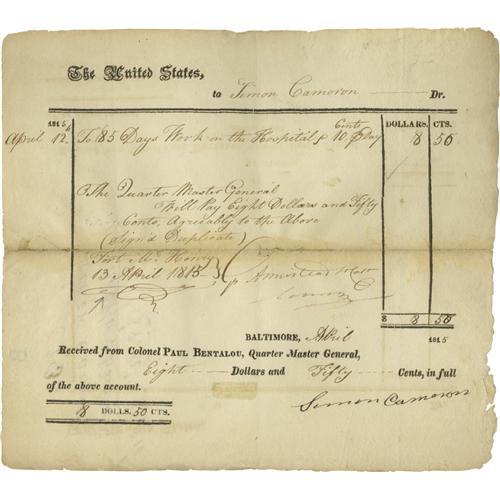 The United States,
to Simon Cameron Dr.
1815 DOLLARS. CTS.
April 12th To 85 Days Work on the Hospital @ 10 Cents P Day 8 50
The Quarter Master General
Will Pay Eight Dollars and Fifty
Cents, Agreably to the Above
(Sign'd Duplicate)
Fort Mc Henry
13 April 1815 Armistead
$ 8 50
BALTIMORE, April 1815
Received from Colonel PAUL BENTALOU, Quarter Master General,
Eight Dollars and Fifty Cents, in full
of the above account.
Simon Cameron
8 DOLLS. 50 CTS.